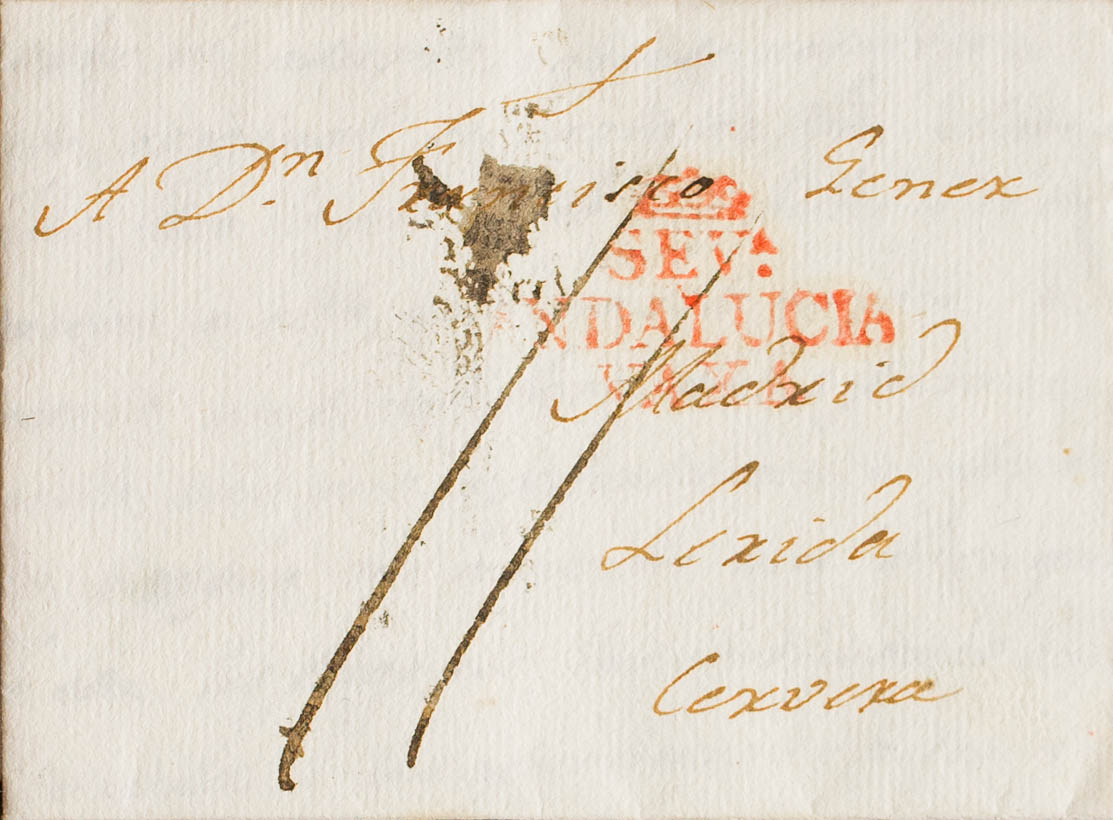 A Dn. Francisco Gener
SEVA:
ANDALUCIA
VAXA
Madrid
Lerida
Cervera